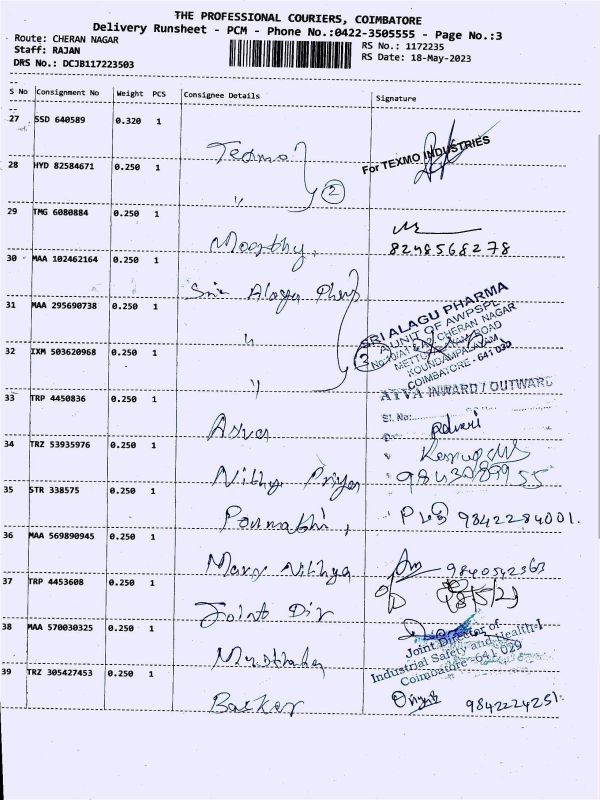 THE PROFESSIONAL COURIERS, COIMBATORE
Delivery Runsheet - PCM - Phone No.:0422-3505555 - Page No.:3
Route: CHERAN NAGAR
RS No.: 1172235
Staff: RAJAN
RS Date: 18-May-2023
DRS No.: DCJB117223503
S No Consignment No Weight PCS Consignee Details Signature
27 SSD 640589 0.320 1
Texmo
For TEXMO INDUSTRIES
28 HYD 82584671 0.250 1
" 2
29 TMG 6080884 0.250 1
Moorthy,
8248568278
30 MAA 102462164 0.250 1
Sri Alagu
SRI ALAGU PHARMA
A UNIT OF AWPSPL
CHERAN NAGAR
31 MAA 295690738 0.250 1
" 3
ROAD
KOUNDAMPALAYAM
COIMBATORE - 641 030
32 IXM 503620968 0.250 1
"
INWARD / OUTWARD
33 TRP 4450836 0.250 1
Sl. No:
34 TRZ 53935976 0.250 1
Nithya Priya
35 STR 338575 0.250 1
9842284001.
36 MAA 569890945 0.250 1
Nithya
37 TRP 4453608 0.250 1
18/5/23
Joint Dir
38 MAA 570030325 0.250 1
Joint Director of
Industrial Safety and Health-I
Coimbatore-641 029
39 TRZ 305427453 0.250 1
Basker
9842224251.